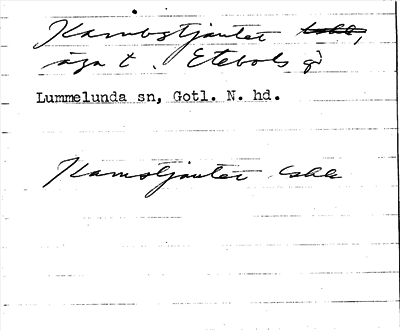 Kambstjautet
äga t. Etebols gd
Lummelunda sn, Gotl. N. hd.
Kamstjautet